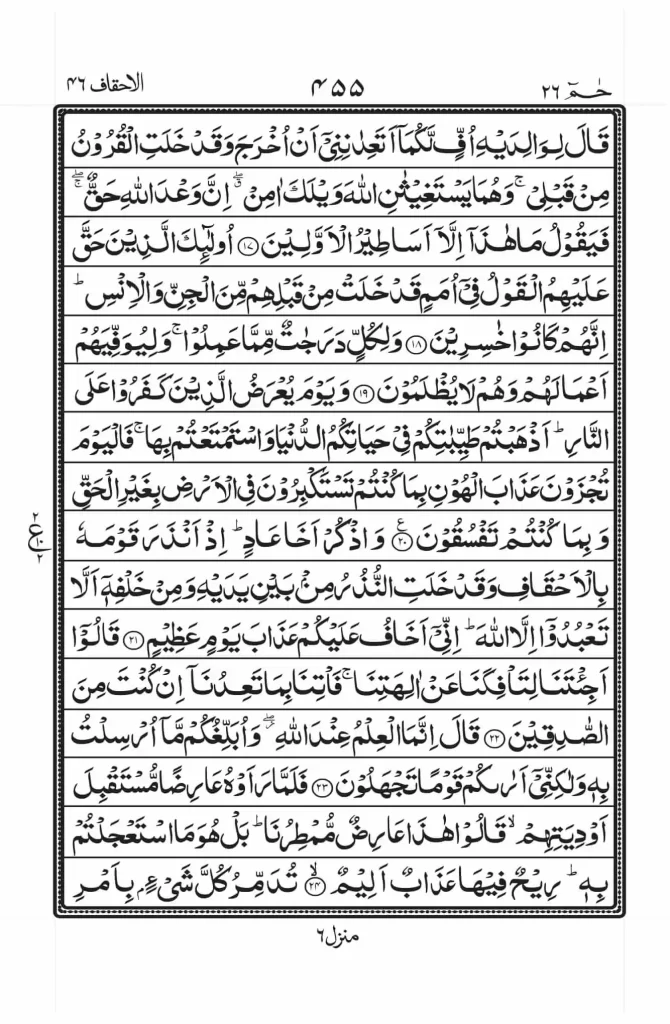 حٰمٓ ۲۶
۴۵۵
الاحقاف ۴۶
قَالَ لِوَالِدَيْهِ اُفٍّ لَّكُمَاۤ اَتَعِدٰنِنِيْۤ اَنْ اُخْرَجَ وَقَدْ خَلَتِ الْقُرُوْنُ
مِنْ قَبْلِيْ ۚ وَهُمَا يَسْتَغِيْثٰنِ اللّٰهَ وَيْلَكَ اٰمِنْ ۖ اِنَّ وَعْدَ اللّٰهِ حَقٌّ ۖۚ
فَيَقُوْلُ مَا هٰذَاۤ اِلَّاۤ اَسَاطِيْرُ الْاَوَّلِيْنَ ۝۱۷ اُولٰٓئِكَ الَّذِيْنَ حَقَّ
عَلَيْهِمُ الْقَوْلُ فِيْۤ اُمَمٍ قَدْ خَلَتْ مِنْ قَبْلِهِمْ مِّنَ الْجِنِّ وَالْاِنْسِ ؕ
اِنَّهُمْ كَانُوْا خٰسِرِيْنَ ۝۱۸ وَلِكُلٍّ دَرَجٰتٌ مِّمَّا عَمِلُوْا ۚ وَلِيُوَفِّيَهُمْ
اَعْمَالَهُمْ وَهُمْ لَا يُظْلَمُوْنَ ۝۱۹ وَيَوْمَ يُعْرَضُ الَّذِيْنَ كَفَرُوْا عَلَى
النَّارِ ؕ اَذْهَبْتُمْ طَيِّبٰتِكُمْ فِيْ حَيَاتِكُمُ الدُّنْيَا وَاسْتَمْتَعْتُمْ بِهَا ۚ فَالْيَوْمَ
تُجْزَوْنَ عَذَابَ الْهُوْنِ بِمَا كُنْتُمْ تَسْتَكْبِرُوْنَ فِي الْاَرْضِ بِغَيْرِ الْحَقِّ
وَبِمَا كُنْتُمْ تَفْسُقُوْنَ ۝۲۰ وَاذْكُرْ اَخَا عَادٍ ؕ اِذْ اَنْذَرَ قَوْمَهٗ
بِالْاَحْقَافِ وَقَدْ خَلَتِ النُّذُرُ مِنْۢ بَيْنِ يَدَيْهِ وَمِنْ خَلْفِهٖۤ اَلَّا
تَعْبُدُوْۤا اِلَّا اللّٰهَ ؕ اِنِّيْۤ اَخَافُ عَلَيْكُمْ عَذَابَ يَوْمٍ عَظِيْمٍ ۝۲۱ قَالُوْۤا
اَجِئْتَنَا لِتَاْفِكَنَا عَنْ اٰلِهَتِنَا ۚ فَاْتِنَا بِمَا تَعِدُنَاۤ اِنْ كُنْتَ مِنَ
الصّٰدِقِيْنَ ۝۲۲ قَالَ اِنَّمَا الْعِلْمُ عِنْدَ اللّٰهِ ۖ وَاُبَلِّغُكُمْ مَّاۤ اُرْسِلْتُ
بِهٖ وَلٰكِنِّيْۤ اَرٰىكُمْ قَوْمًا تَجْهَلُوْنَ ۝۲۳ فَلَمَّا رَاَوْهُ عَارِضًا مُّسْتَقْبِلَ
اَوْدِيَتِهِمْ ۙ قَالُوْا هٰذَا عَارِضٌ مُّمْطِرُنَا ؕ بَلْ هُوَ مَا اسْتَعْجَلْتُمْ
بِهٖ ؕ رِيْحٌ فِيْهَا عَذَابٌ اَلِيْمٌ ۙ ۝۲۴ تُدَمِّرُ كُلَّ شَيْءٍۭ بِاَمْرِ
منزل ۶